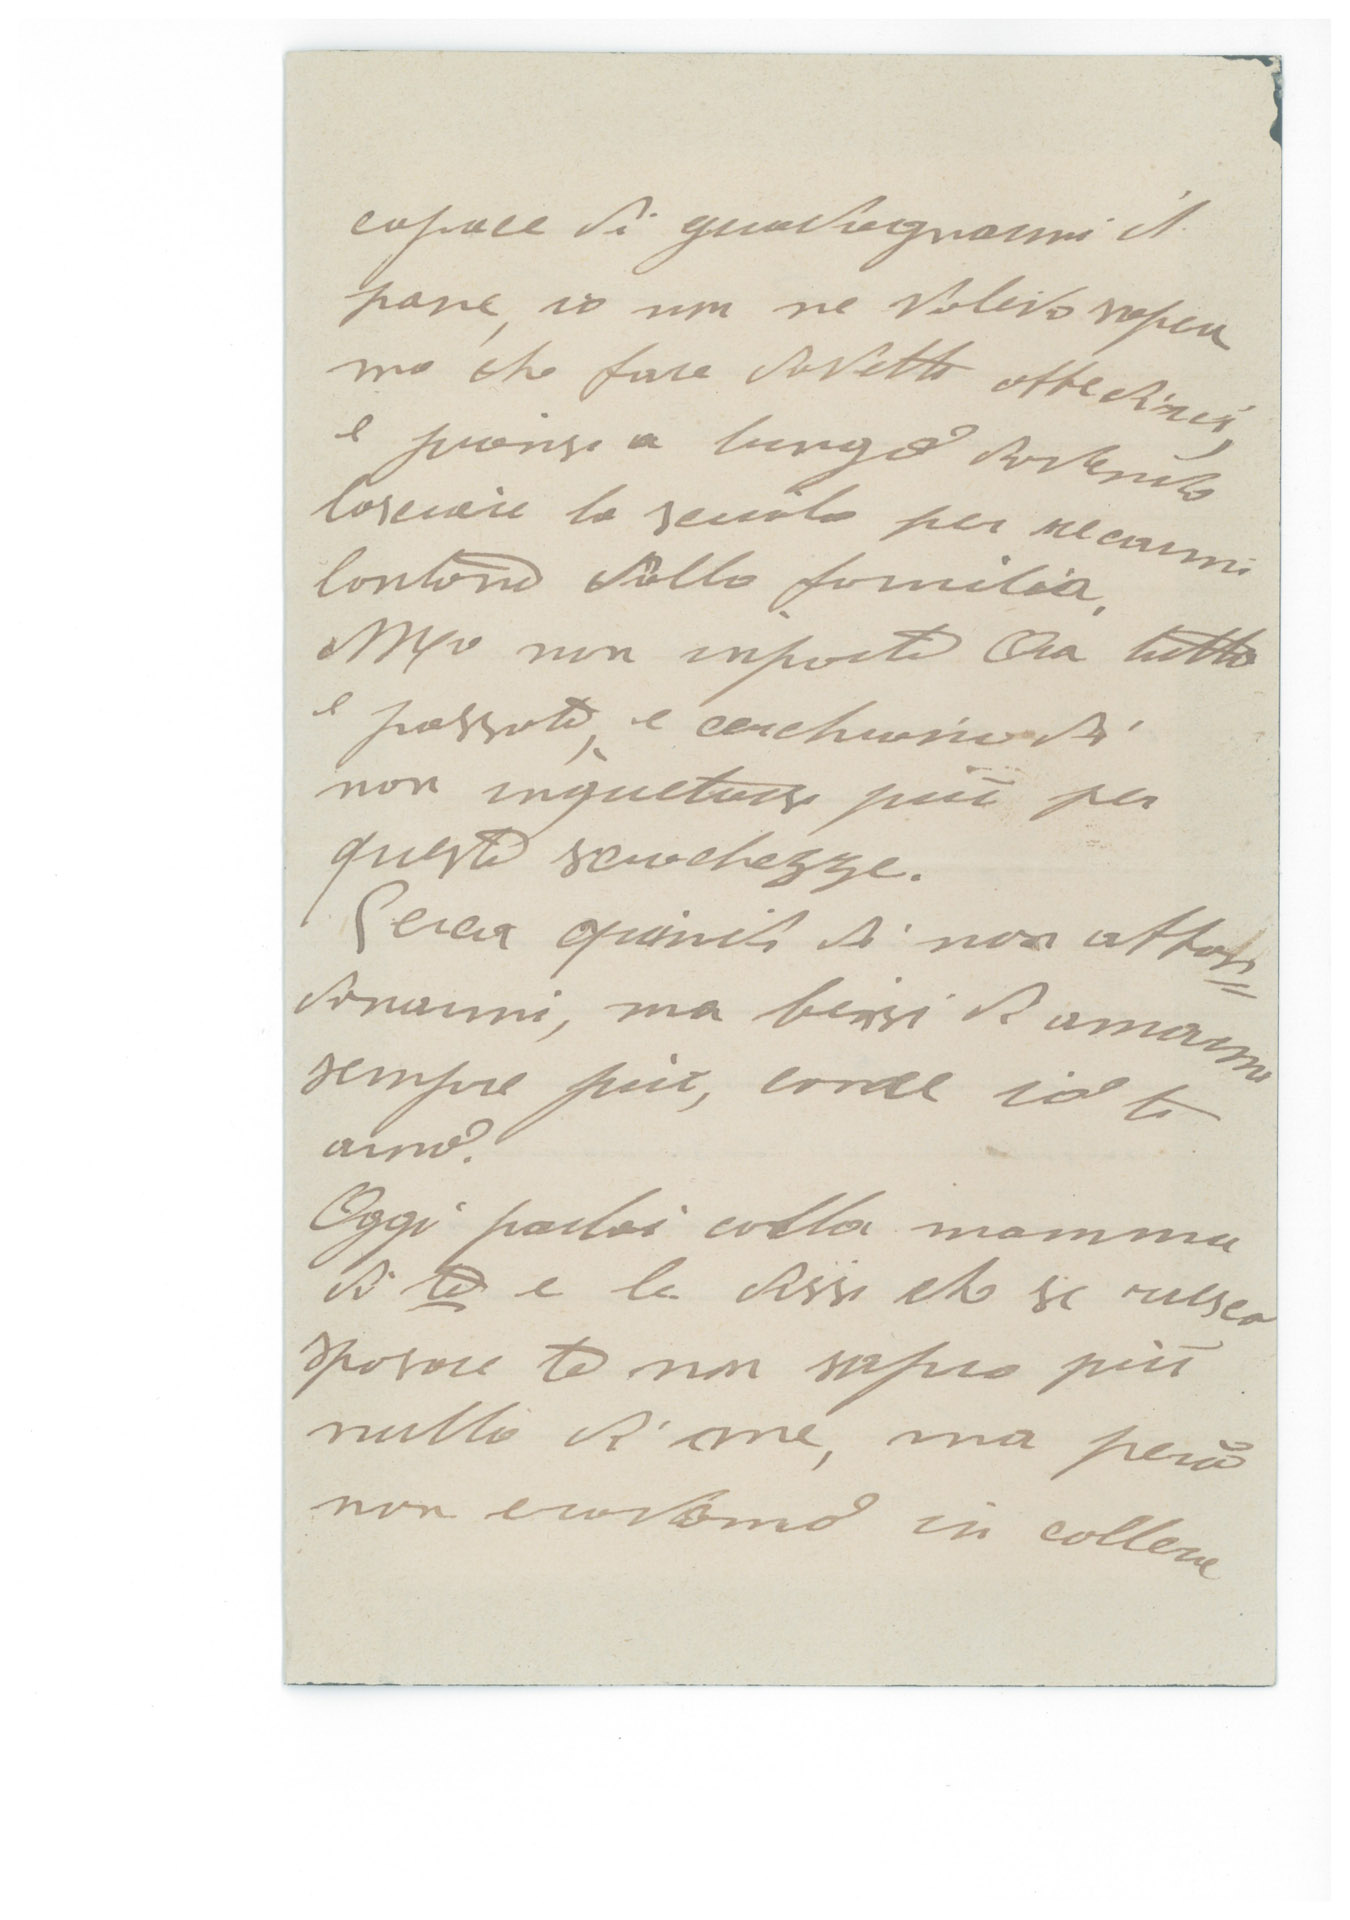 capace di guadagnarmi il
pane, io non ne volevo sapere
ma che fare dovetti obbedire,
e piansi a lungo dovendo
lasciare la scuola per recarmi
lontano dalla familia.
Ma non inporta Ora tutto
e passato, e cerchiamo di
non inquetarsi più per
queste sciochezze.
Cerca quindi di non abban=
donarmi, ma bensi di amarmi
sempre più, come io te
amo.
Oggi parlai colla mamma
di te e le dissi che se riesco
sposare te non sapra più
nulla di me, ma però
non eravamo in collera